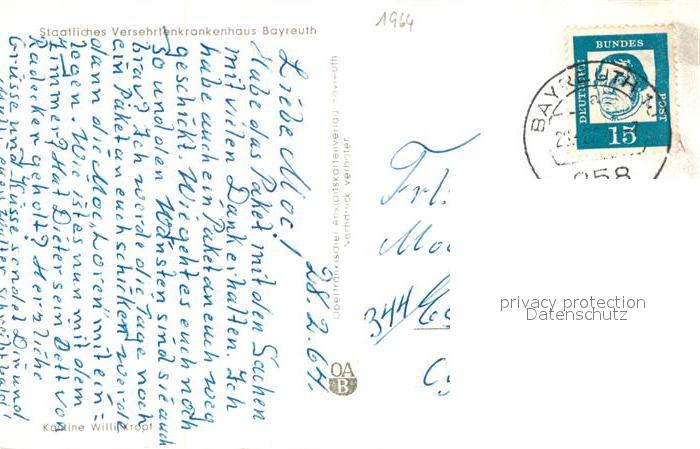 1964
Staatliches Versehrtenkrankenhaus Bayreuth
Liebe Moc, 28.2.64.
Habe das Paket mit den Sachen
mit vielen Dank erhalten. Ich
habe auch ein Paket an euch weg
geschickt. Wie geht es euch noch
So und den sind sie auch
brav? Ich werde die Tage noch
ein Paket an euch schicken werde
dann die Moc, mit ein =
legen. Wie ist es nun mit dem
Zimmer? Hat Dieter sein Bett von
Radecker geholt? Herzliche
Grüsse und Küsse send Di und
Kantine Willi Kropf
Oberfränkischer Ansichtskartenverlag Bayreuth
Nachdruck verboten
OA
B
DEUTSCHE
BUNDES
POST
15
BAYREUTH
858
Frl.
Mo
344
privacy protection
Datenschutz